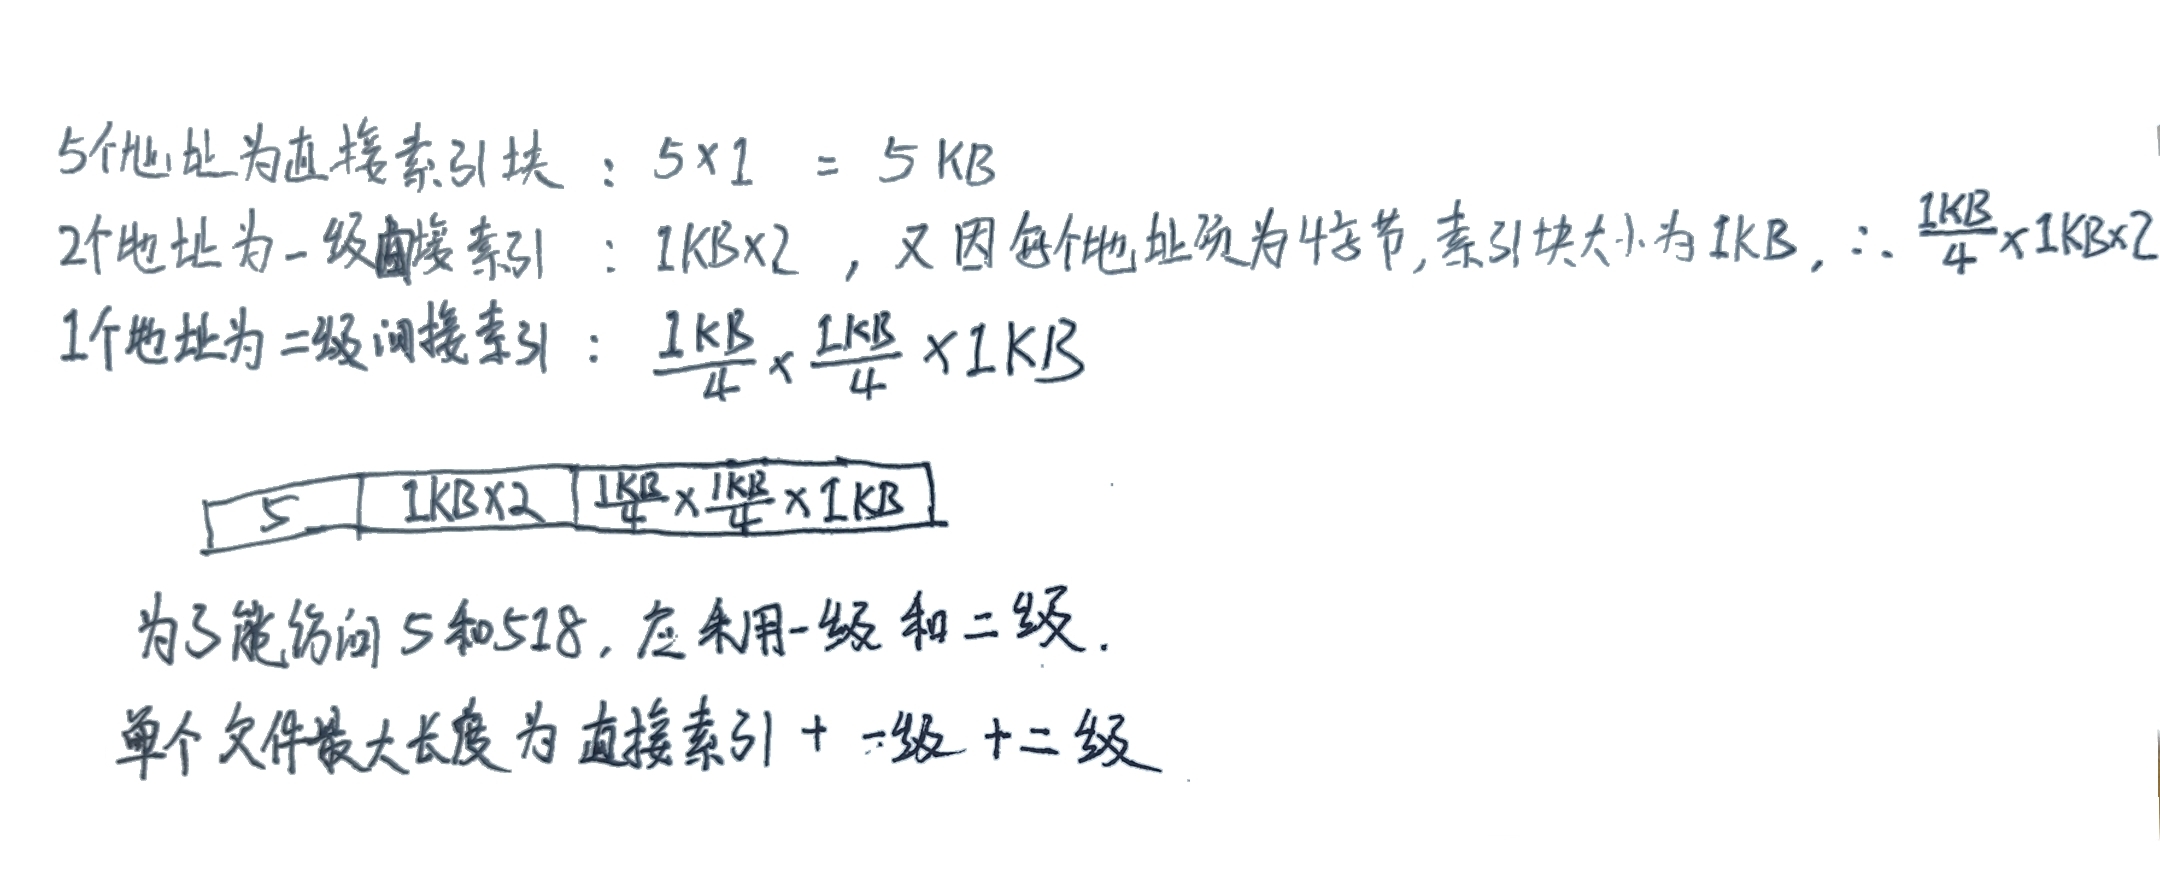 5个地址为直接索引块：5×1 = 5KB
2个地址为一级间接索引：1KB×2，又因每个地址项为4字节，索引块大小为1KB，∴ 1KB/4 ×1KB×2
1个地址为二级间接索引：1KB/4 × 1KB/4 ×1KB
5 1KB×2 1KB/4 × 1KB/4 ×1KB
为了能访问5和518，应采用一级和二级.
单个文件最大长度为直接索引+一级+二级